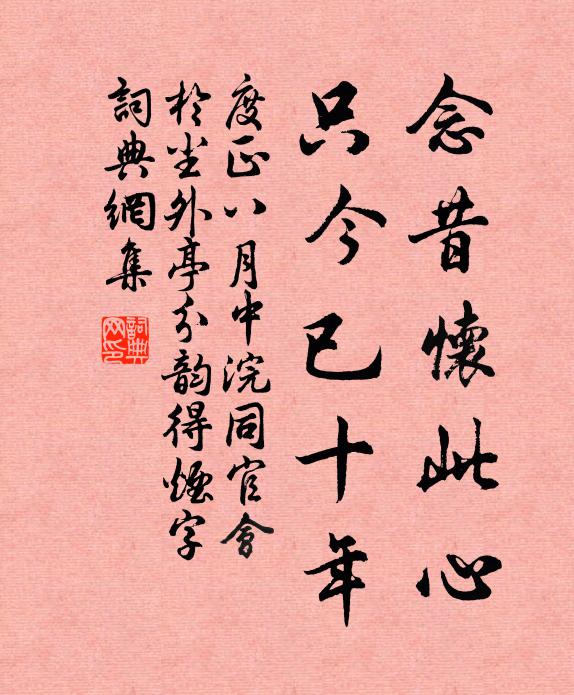 念昔懷此心
只今已十年
度正八月中浣同官會
於坐外亭分韵得煙字
詞典網集
詞典网印